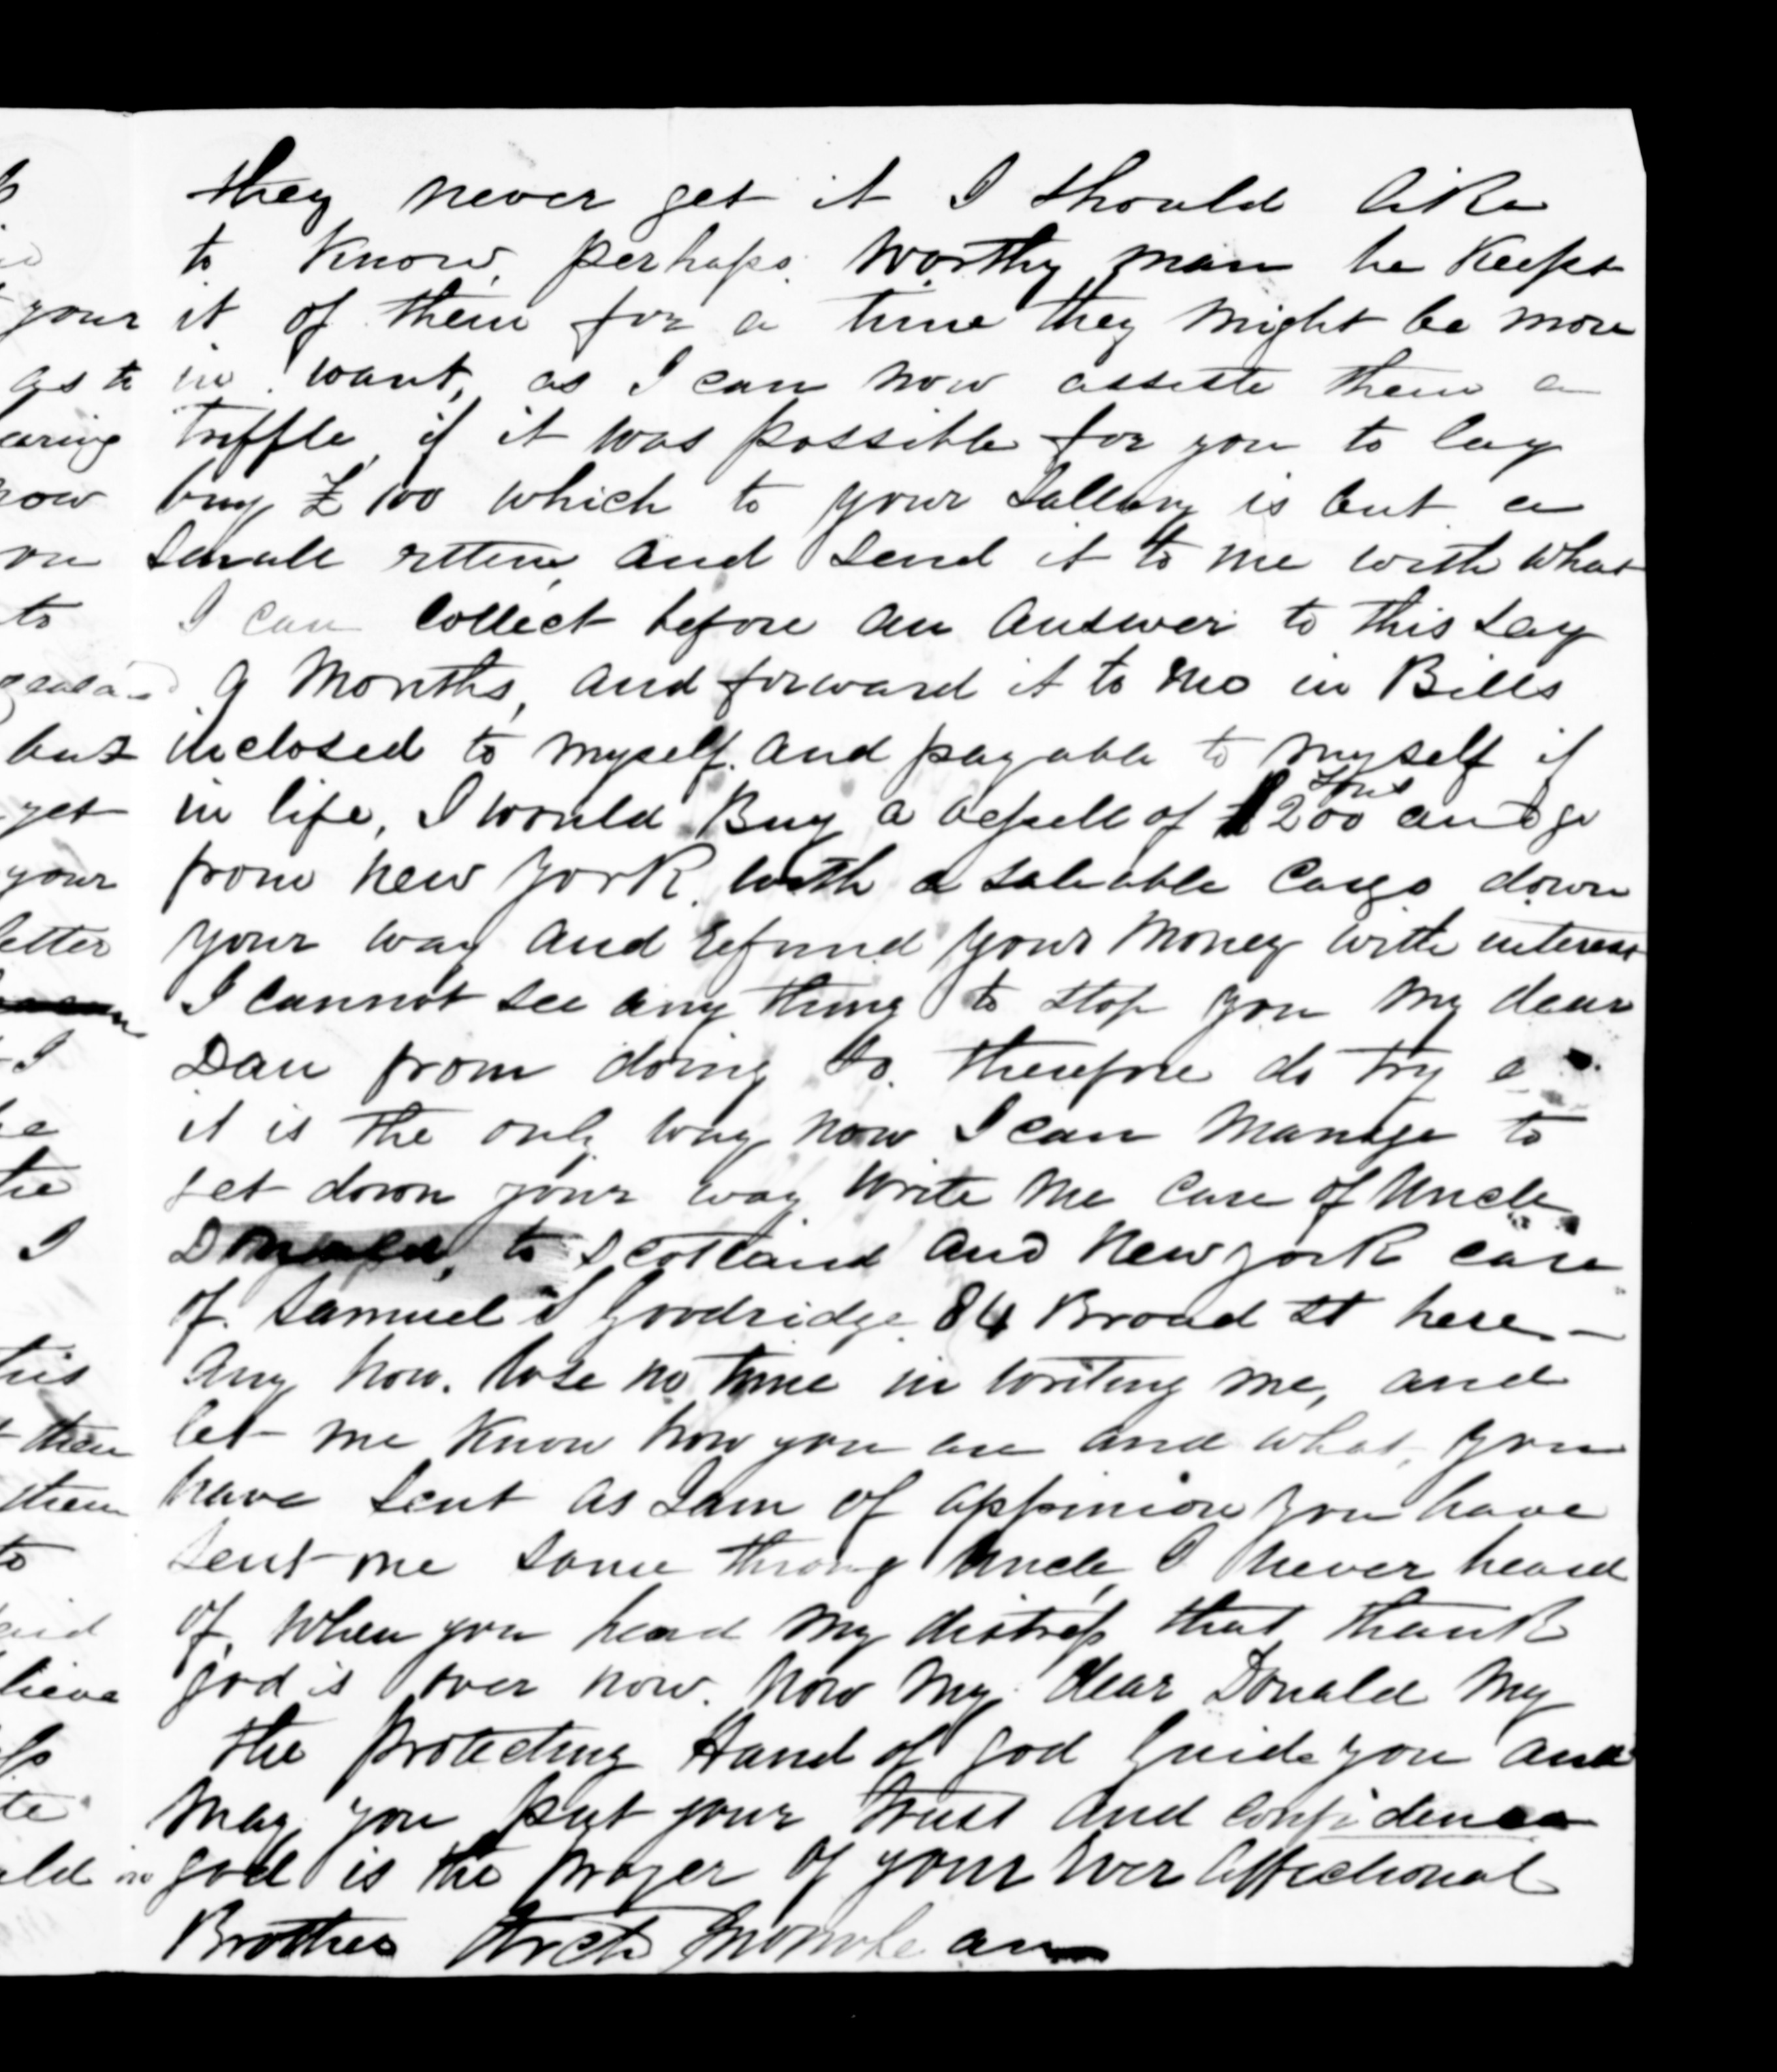 they never get it I should like
to know, perhaps worthy man he keeps
it of them for a time they might be more
in want, as I can now assiste them a
triffle, if it was possible for you to lay
buy £100 which to your Sallery is but a
small and send it to me with what
I can collect before an answer to this say
9 Months, and forward it to me in Bills
inclosed to myself and payable to myself if
in life, I would Buy a vessell of 200 tons and go
from New York with a saleable Cargo down
your way and refund your money with interest
I cannot see any thing to stop you my dear
Dan from doing so. therefore do try
it is the only way now I can manage to
get down your way write me care of Uncle
to Scotland and New york care
of Samuel Goodridge 84 Broad St here -
Any how. lose no time in writing me, and
let me know how you are and what you
have sent as I am of oppinion you have
sent me some throug Uncle, I never heard
of, when you heard my distress that thank
god is over now. now my dear Donald my
the protecting Hand of god Guide you and
may you put your trust and confidence
in god is the prayer of your Ever affectional
Brother Arch
your
as to
aring
now
to
but
yet
your
letter
I
I
this
then
them
to
lieve